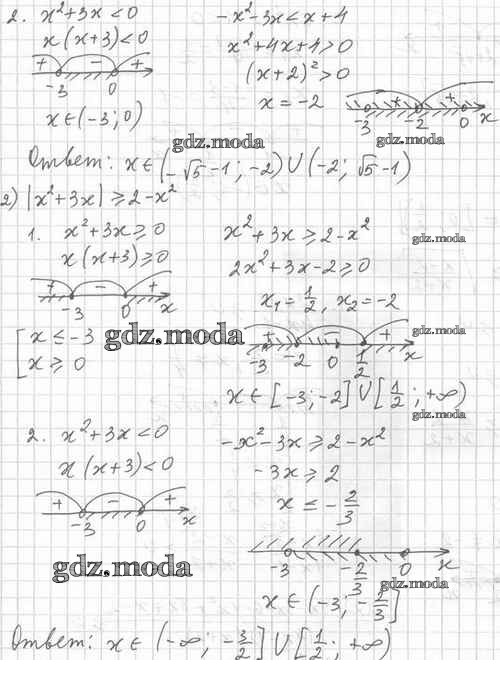 2. x²+3x<0
x(x+3)<0
+ − +
-3 0
x∈(-3; 0)
-x²-3x<x+4
x²+4x+4>0
(x+2)²>0
x=-2
+ +
-3 -2 0
gdz.moda
gdz.moda
Ответ: x∈(-√5-1; -2)∪(-2; √5-1)
2) |x²+3x|⩾2-x²
1. x²+3x⩾0
x(x+3)⩾0
+ − +
-3 0 x
[x⩽-3
x⩾0
x²+3x⩾2-x²
gdz.moda
2x²+3x-2⩾0
x₁=1/2, x₂=-2
gdz.moda
gdz.moda
+ − +
-3 -2 0 1/2 x
x∈[-3;-2]∪[1/2; +∞)
gdz.moda
2. x²+3x<0
x(x+3)<0
+ − +
-3 0 x
-x²-3x⩾2-x²
-3x⩾2
x⩽-2/3
gdz.moda
-3 -2/3 0 x
gdz.moda
x∈(-3;-2/3]
Ответ: x∈(-∞; -3/2]∪[1/2; +∞)